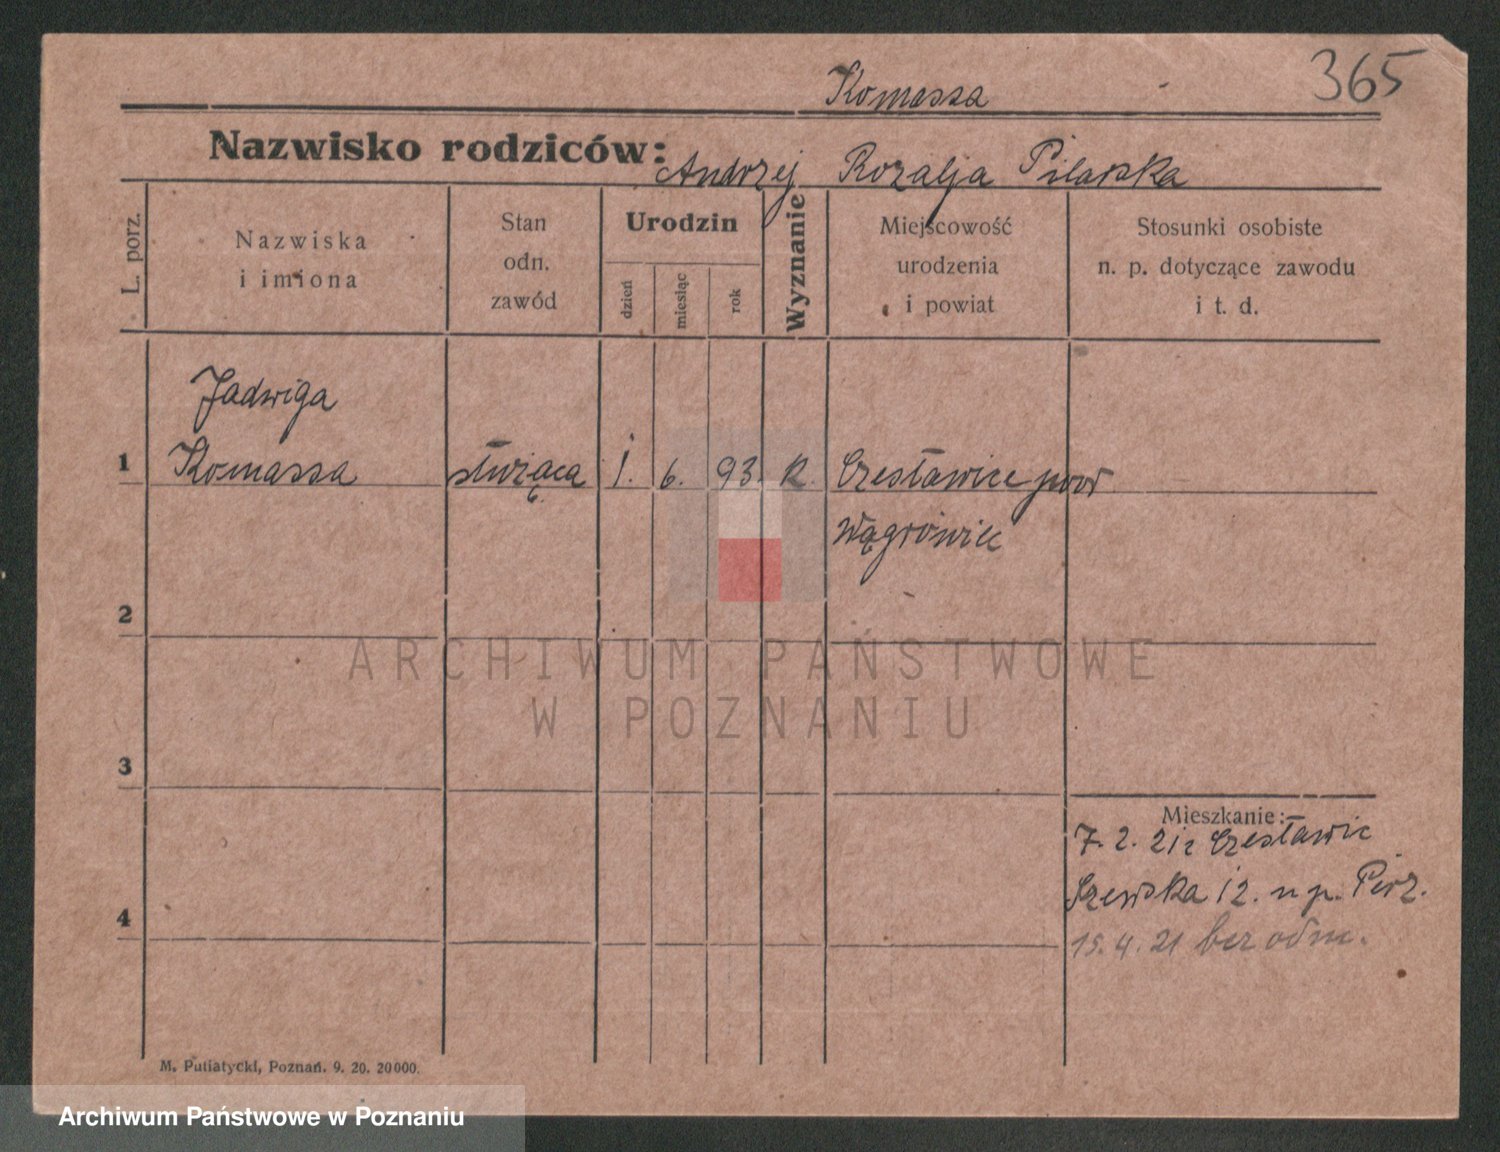 Komassa
365
Nazwisko rodziców: Andrzej Rozalja Pilarska
L. porz.
Nazwiska
i imiona
Stan
odn.
zawód
Urodzin
dzień
miesiąc
rok
Wyznanie
Miejscowość
urodzenia
i powiat
Stosunki osobiste
n. p. dotyczące zawodu
i t. d.
Jadwiga
1 Komassa służąca 1. 6. 93. K. Czesławice pow
Wągrówiec
2
ARCHIWUM PAŃSTWOWE
W POZNANIU
3
Mieszkanie:
7. 2. 21 z Czesławic
Szewska 12. n p.
4
15. 4. 21 bez odm.
M. Putiatycki, Poznań. 9. 20. 20000.
Archiwum Państwowe w Poznaniu